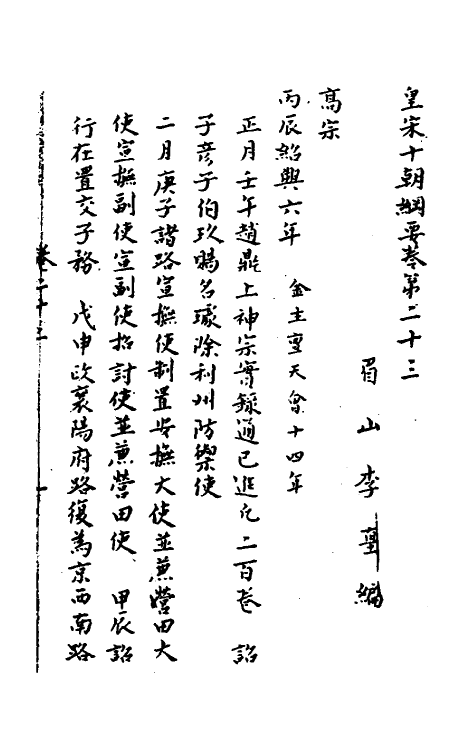 皇宋十朝綱要卷第二十三
眉山李𡌴編
高宗
丙辰紹興六年 金主亶天會十四年
正月壬午趙鼎上神宗實錄通已進凡二百卷 詔
子彦子伯玖賜名璩除利州防禦使
二月庚子諸路宣撫使制置安撫大使並兼營田大
使宣撫副使宣副使招討使並兼營田使 甲辰詔
行在置交子務 戊申改襄陽府路復為京西南路
卷二十三 一